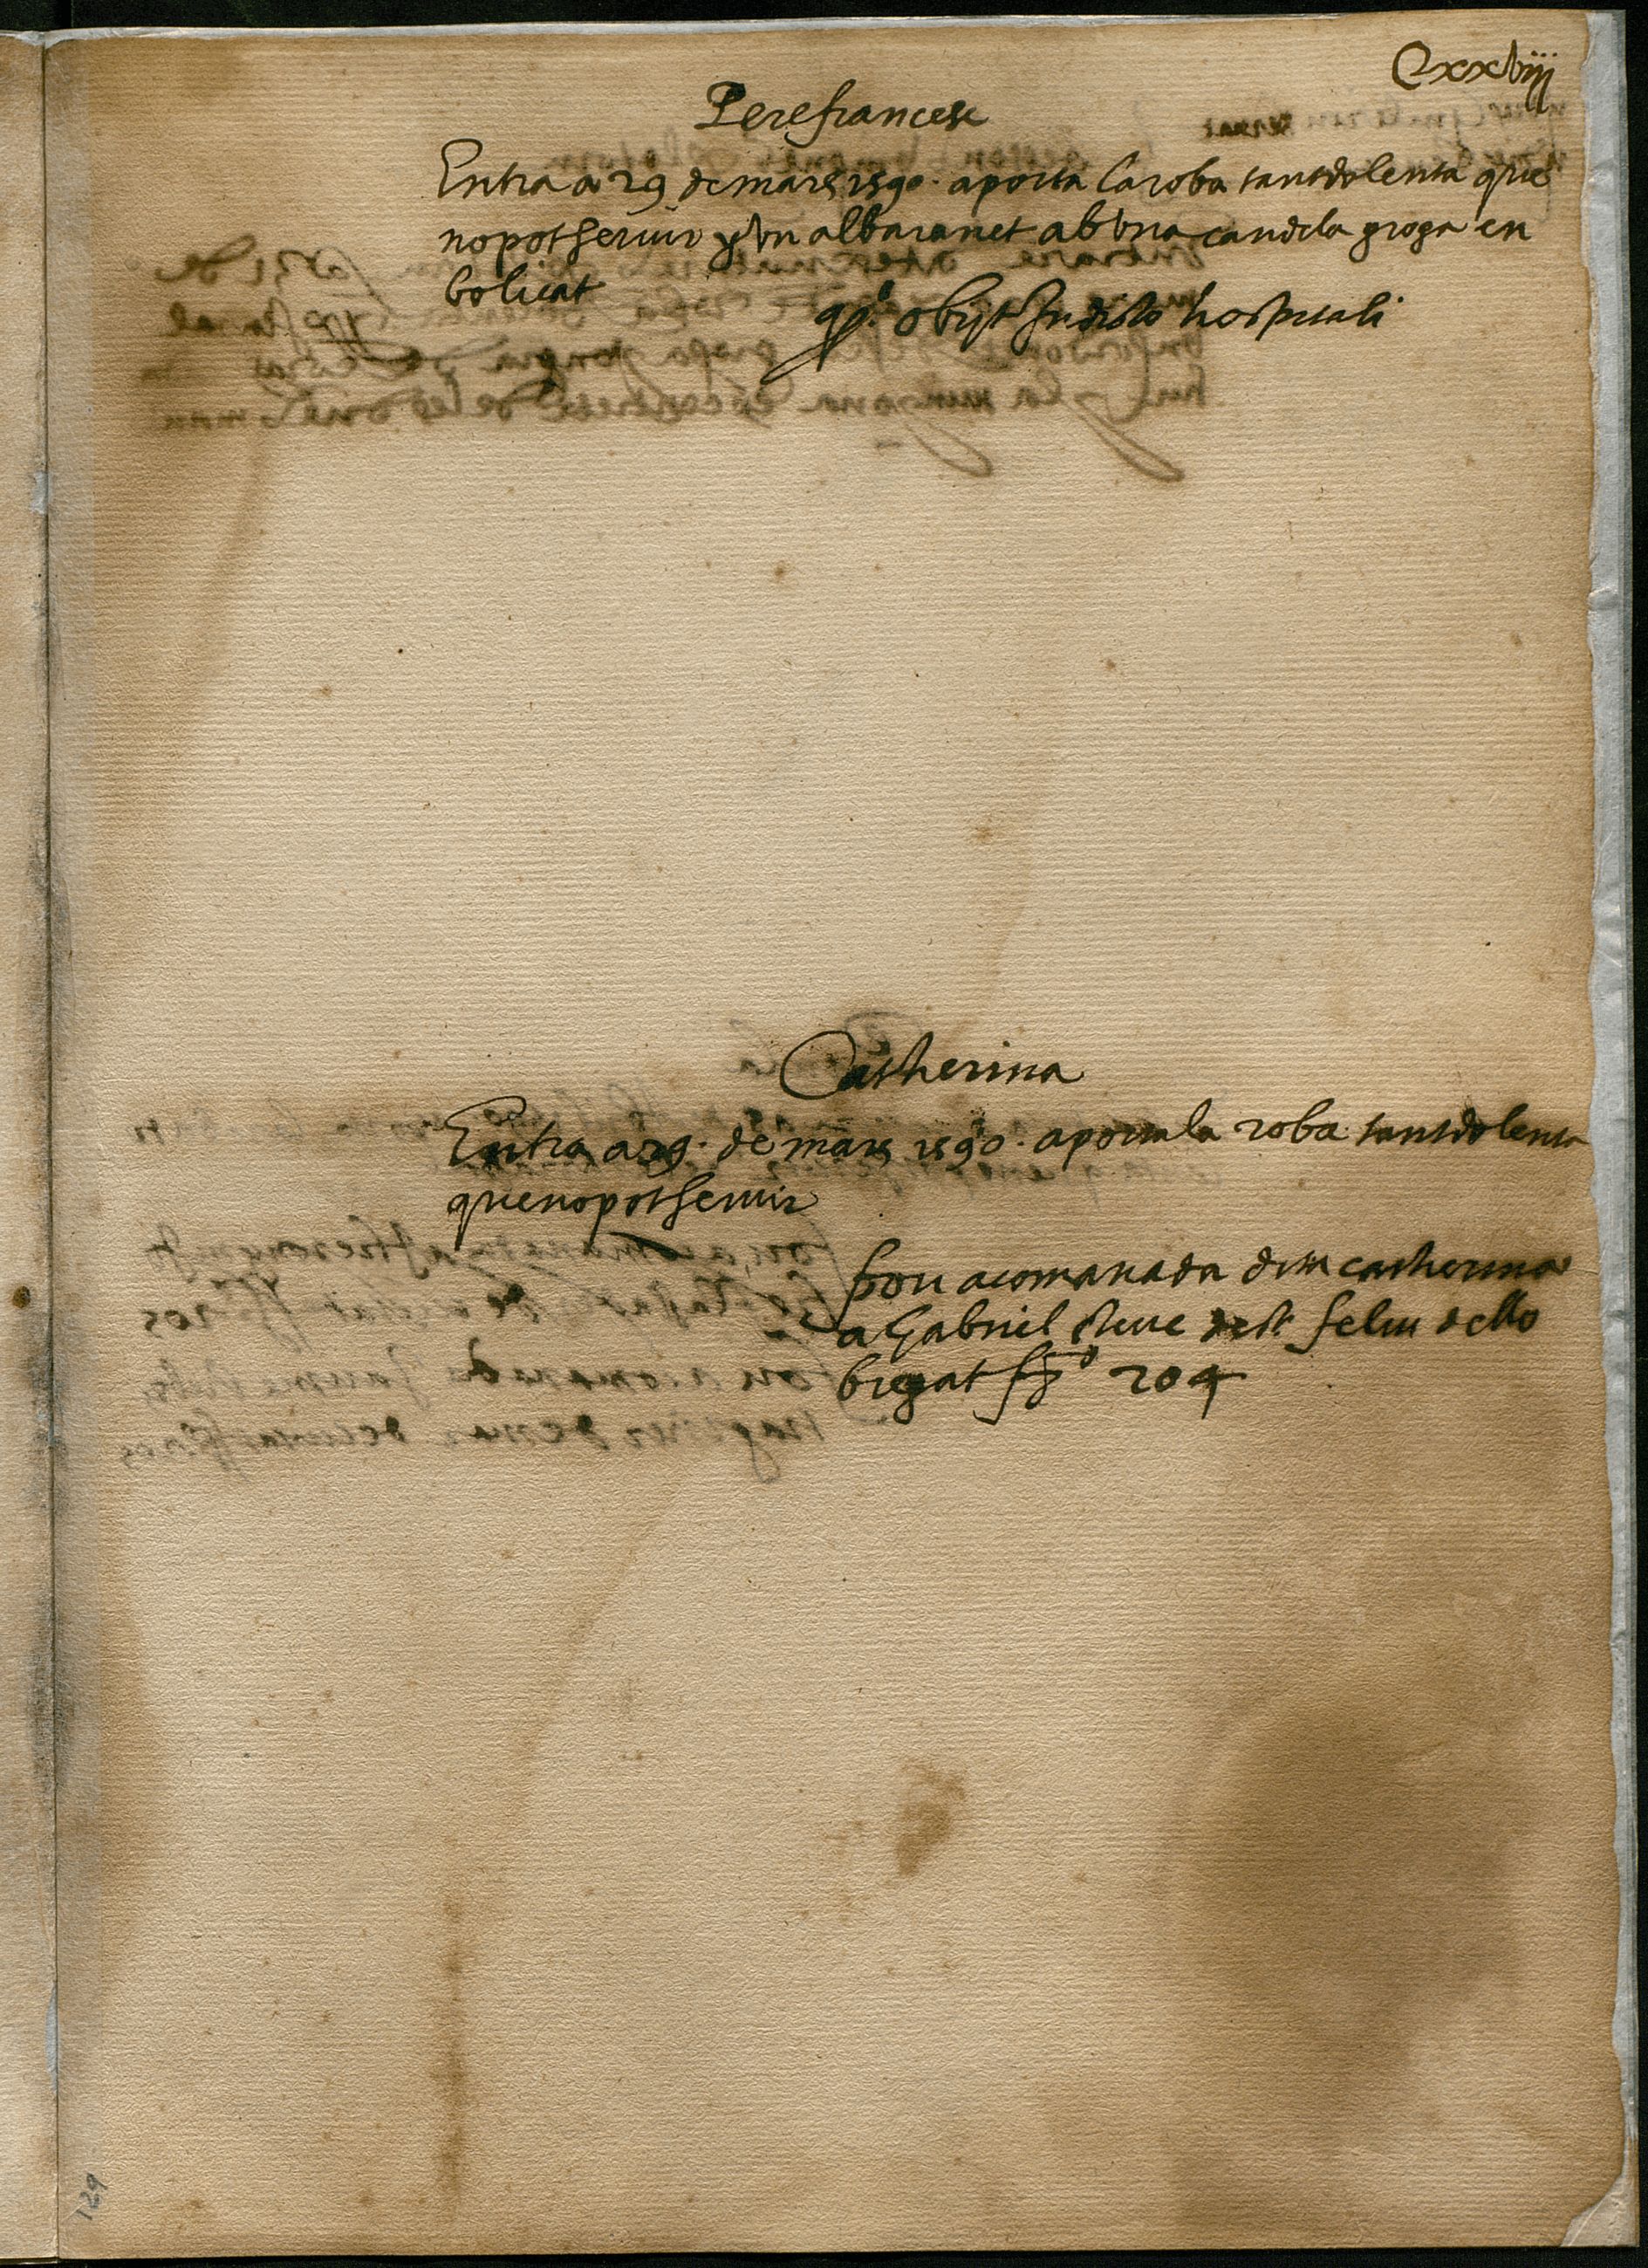 Cxxviiij
Perefrancesc
Entra a 29 de mars 1590. aporta la roba tantdolenta que
nopot servir y vn albaranet ab vna candela groga en
bolicat
qº. obijt In dicto hospitali
Catherina
Entra a 29. de mars 1590. aporta la roba tantdolenta
quenopot servir
fou acomanada dita catherina
a Gabriel steve de st. feliu dello
bregat fº 204
129